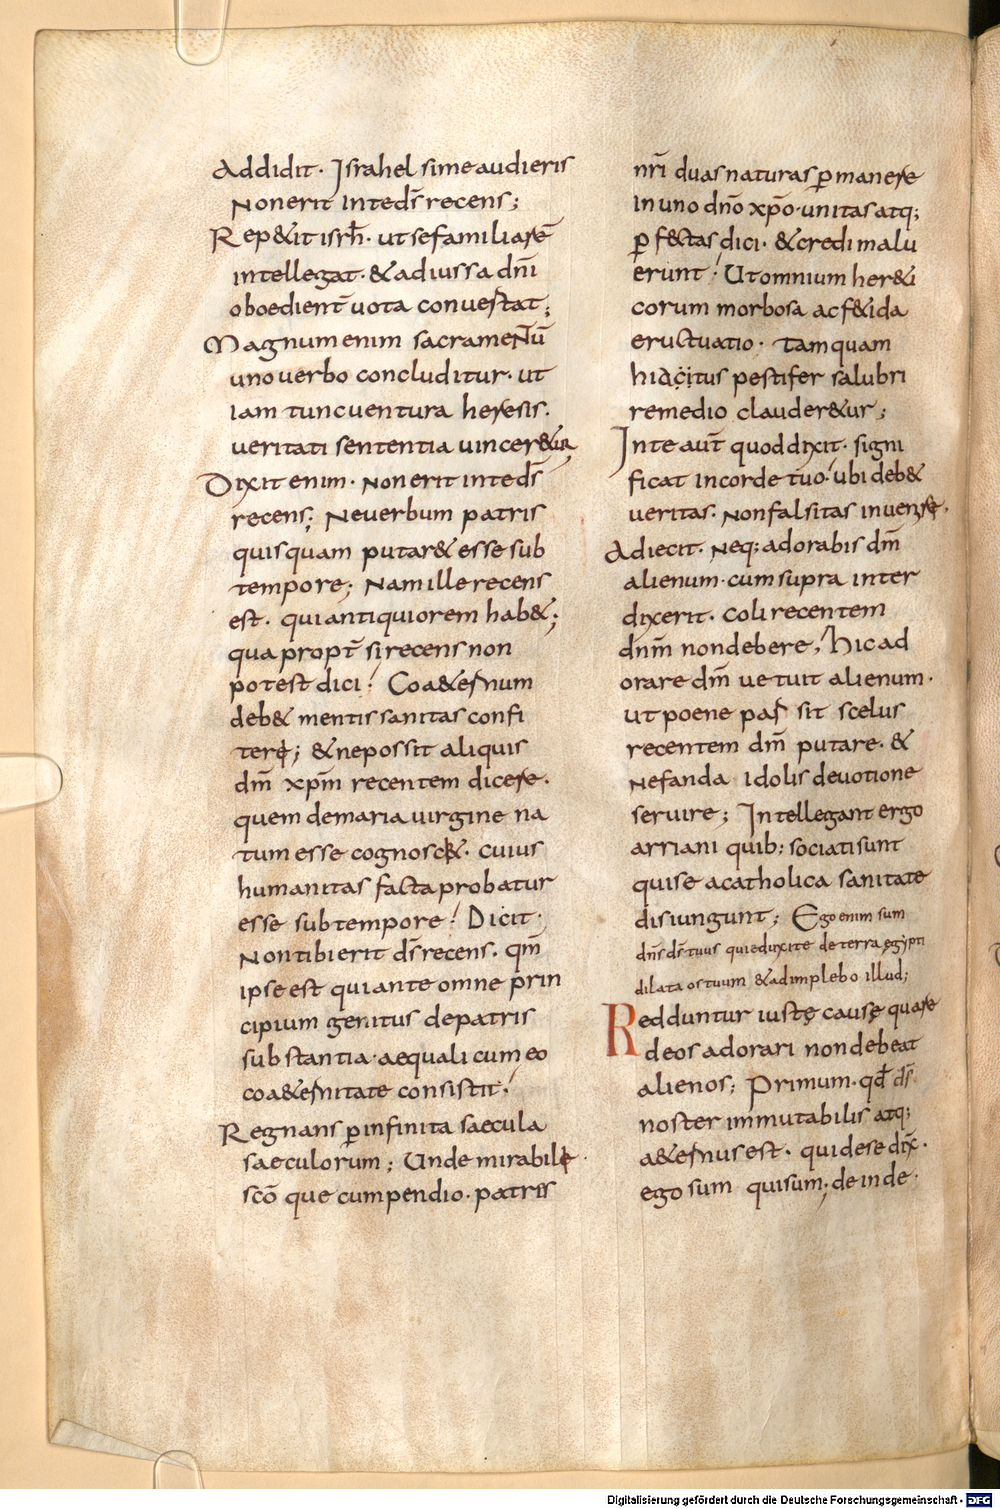 Addidit · Israhel si me audieris
Non erit in te ds̄ recens;
Rep&it isrh̄ · ut se familiarē
intellegat · & ad iussa dn̄i
oboedient̄ uota conuertat;
Magnum enim sacramen̄ū
uno uerbo concluditur · ut
iam tunc uentura heresis ·
ueritati sententia uincer&ur
Dixit enim · Non erit in te ds̄
recens; Ne uerbum patris
quisquam putar& esse sub
tempore; Nam ille recens
est · qui antiquiorem hab&;
qua propt̄ si recens non
potest dici! Coa&ernum
deb& mentis sanitas confi
terę; & ne possit aliquis
dm̄ xpm̄ recentem dicere ·
quem de maria uirgine na
tum esse cognosc& · cuius
humanitas facta probatur
esse sub tempore! Dicit;
Non tibi erit ds̄ recens · qm̄
ipse est qui ante omne prin
cipium genitus de patris
substantia · aequali cum eo
coa&ernitate consistit;
Regnans ꝑ infinita saecula
saeculorum; Unde mirabile
scō que cumpendio · patris
nr̄i duas naturas ꝑmanere
in uno dn̄o xp̄o · unitas atq;
ꝑf&ctas dici · & credi malu
erunt! Ut omnium her&i
corum morbosa ac f&ida
eructuatio · tamquam
hiacitus pestifer salubri
remedio clauder&ur;
In te aut̄ quod dixit · signi
ficat in corde tuo · ubi deb&
ueritas · non falsitas inuenire ·
Adiecit · Neq; adorabis dm̄
alienum · cum supra inter
dixerit · coli recentem
dnm̄ non debere; hic ad
orare dm̄ uetuit alienum ·
ut poene par sit scelus
recentem dm̄ putare · &
nefanda idolis deuotione
seruire; Intellegant ergo
arriani quib; sociati sunt
qui se a catholica sanitate
disiungunt; Ego enim sum
dn̄s ds̄ tuus qui eduxi te de terra ęgypti
dilata os tuum & adimplebo illud;
Redduntur iustę causę quare
deos adorari non debeat
alienos; Primum · qd̄ ds̄
noster immutabilis atq;
a&ernus est · qui de se dix̄ ·
ego sum qui sum; deinde ·
Digitalisierung gefördert durch die Deutsche Forschungsgemeinschaft - DFG